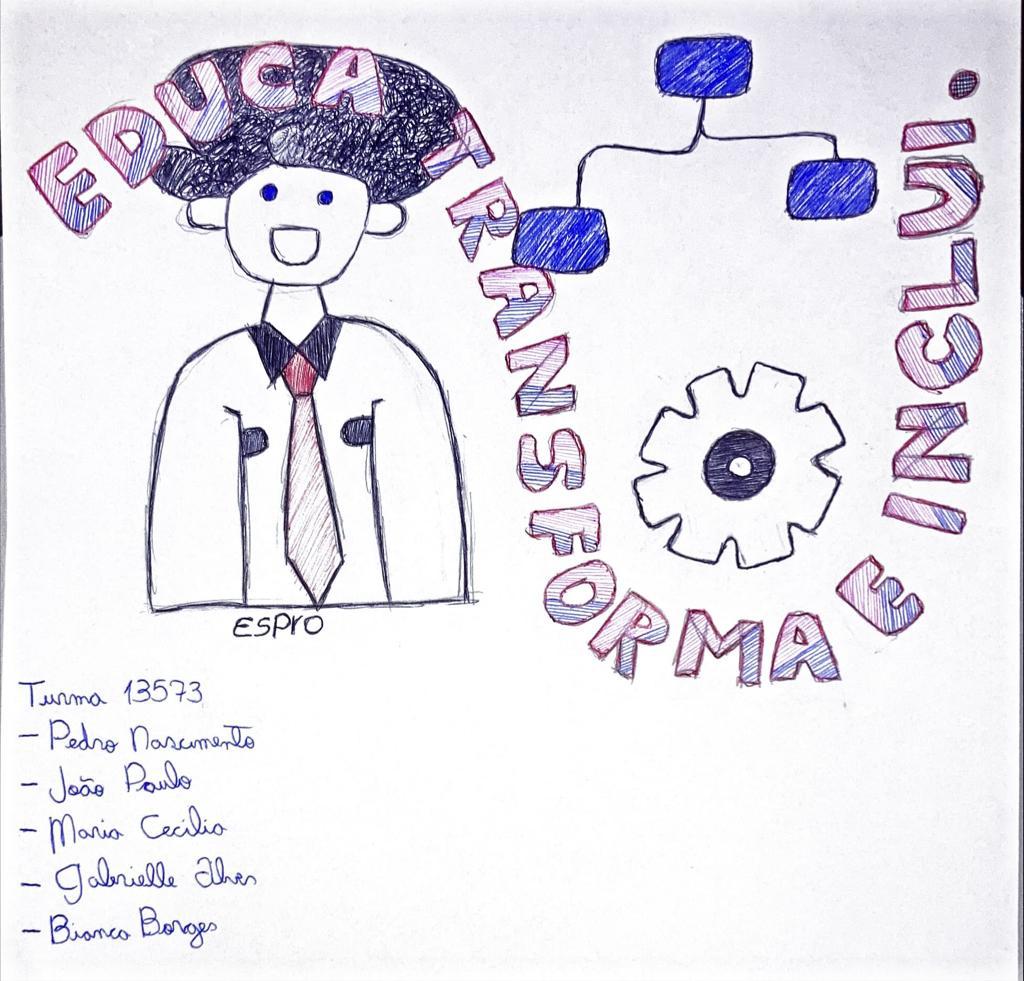 EDUCA TRANSFORMA E INCLUI.
ESPro
Turma 13573
- Pedro Nascimento
- João Paulo
- Maria Cecilia
- Gabrielle Alves
- Bianca Borges